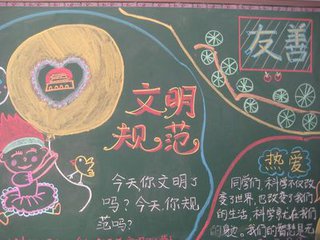 文明
规范
今天你文明了
吗？今天，你规
范吗？
友善
热爱
同学们，科学不仅改
变了世界，也改变了我们
的生活，科学早已在我们
的身边。我们的智慧是无